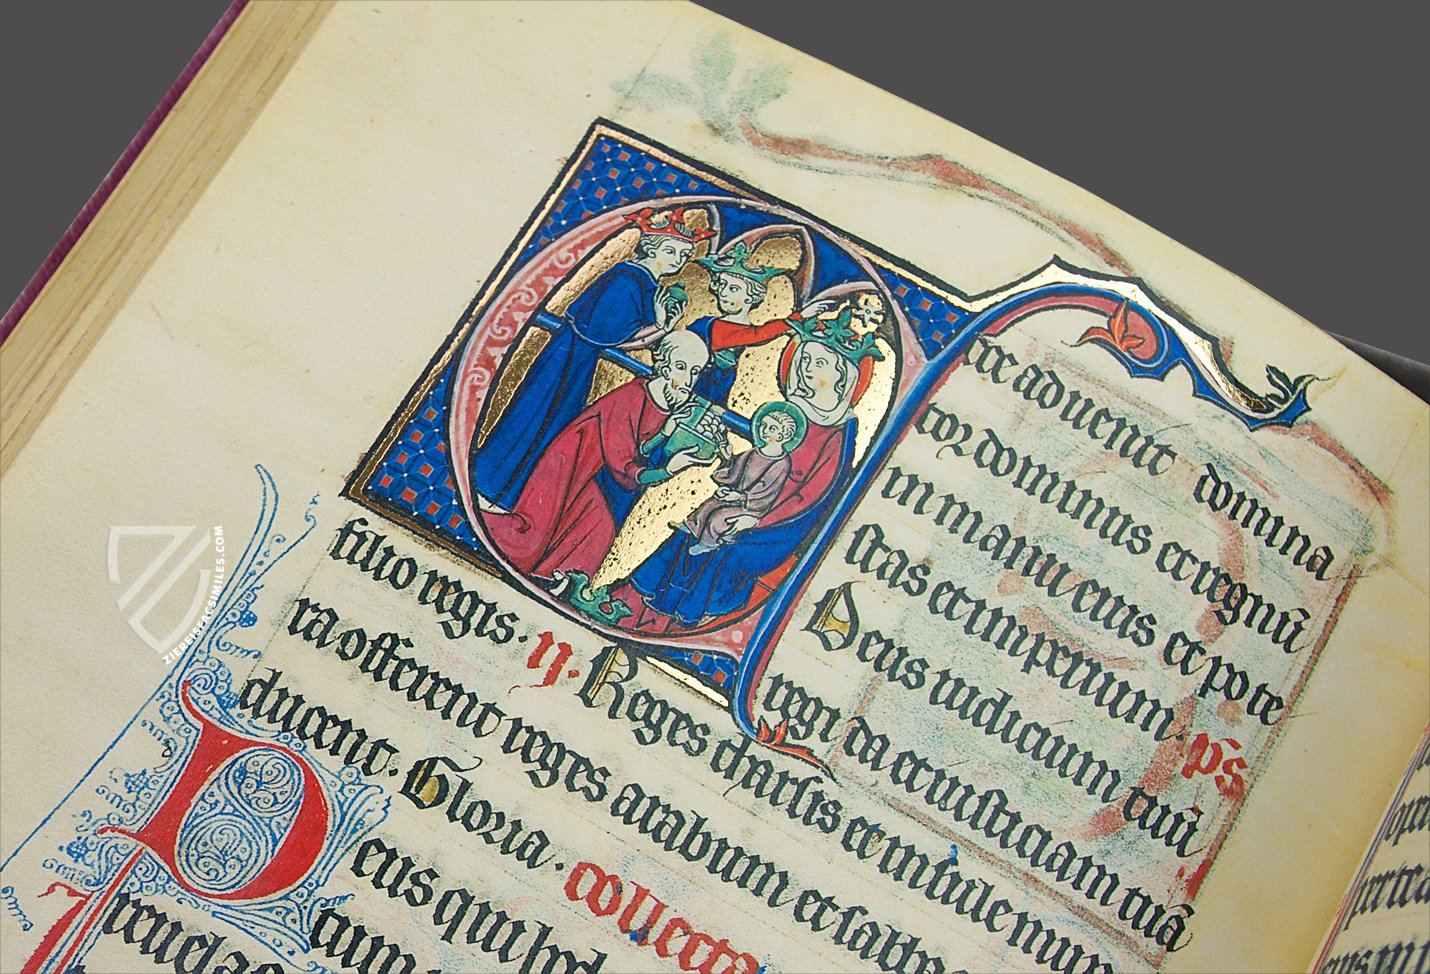 Ecce aduenit domina
tor dominus et regnū
in manu eius et pote
stas et imperium. ps
Deus iudicium tuū
regi da et iusticiam tuā
filio regis. V. Reges tharsis et insule mun
ra offerent reges arabum et sabba
ducent. Gloria. collecta
Deus qui hod
tum
ZIEREISFACSIMILES.COM